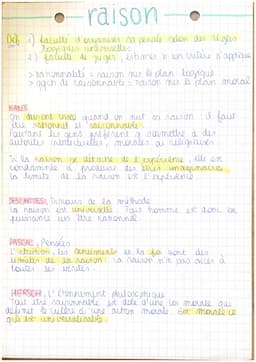 raison
Déf 1) faculté d'organiser sa pensée selon des règles
logiques universelles.
2) faculté de juger, estimer si un critère s'applique
> rationnalité = raison sur le plan logique
de raisonnable = raison sur le plan moral
KANT
On devient que quand on suit sa raison : il faut
être rationnel et raisonnable.
Pourtant les gens préfèrent se soumettre à des
autorités intellectuelles, morales ou religieuses
Si la raison se détache de l'expérience, elle est
condamnée à produire des êtres imaginaires
la limite de la raison est l'expérience
DESCARTES, Discours de la méthode
la raison est universelle. Tout homme est donc en
puissance un être rationnel
PASCAL, Pensées
L'intuition, les sentiments et la foi sont des
limites de la raison. La raison n'a pas accès à
toutes les vérités.
HERSCH, L'étonnement philosophique
Tout être raisonnable est doté d'une loi morale qui
définit le critère d'une action morale. Est morale ce
qui est universalisable.